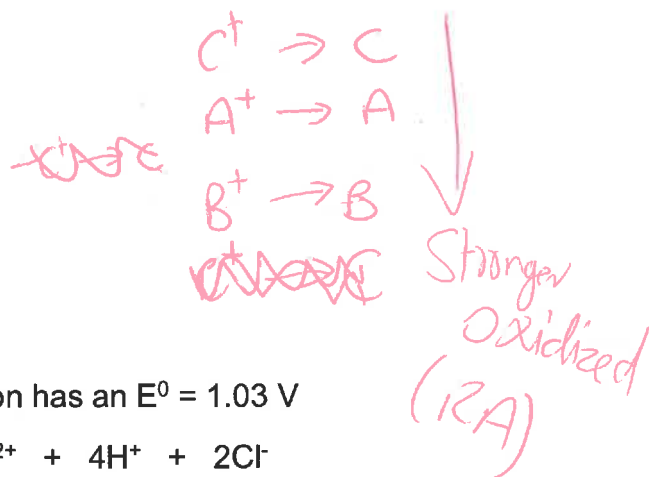 C⁺ → C
A⁺ → A
B⁺ → B
Stronger
Oxidized
(RA)
on has an E⁰ = 1.03 V
²⁺ + 4H⁺ + 2Cl⁻